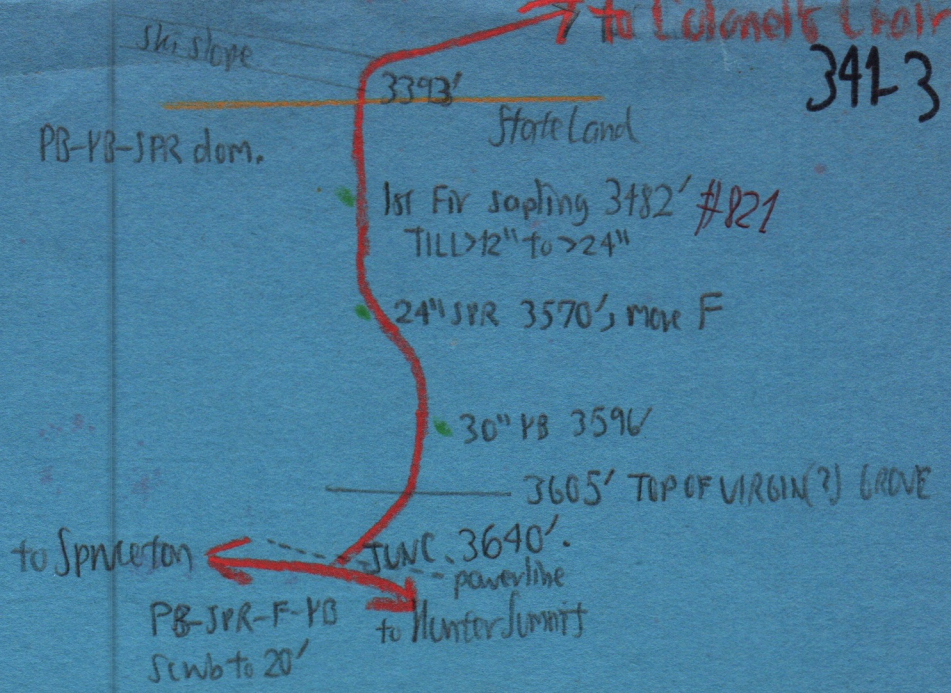 to Colonel's Chair
341-3
ski slope
3393'
State Land
PB-YB-SPR dom.
1st Fir sapling 3482' #821
TILL>12" to >24"
24" SPR 3570', more F
30" YB 3596'
3605' TOP OF VIRGIN(?) GROVE
to Spruceton
JUNC. 3640'.
powerline
PB-SPR-F-YB
to Hunter Summit
scrub to 20'